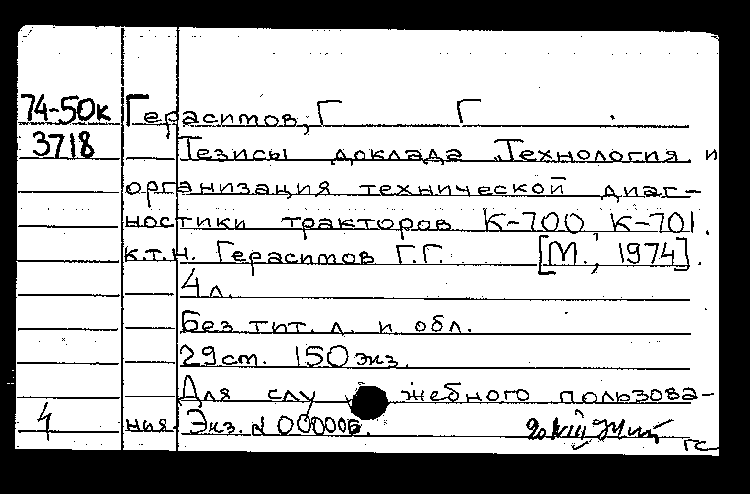 74-50к Герасимов, Г Г
3718 Тезисы доклада „Технология и
организация технической диаг-
ностики тракторов К-700, К-701.
к.т.н. Герасимов Г.Г. [М., 1974].
4 л.
Без тит. л. и обл.
29 см. 150 экз.
Для служебного пользова-
4 ния. Экз. № 000006.
гс